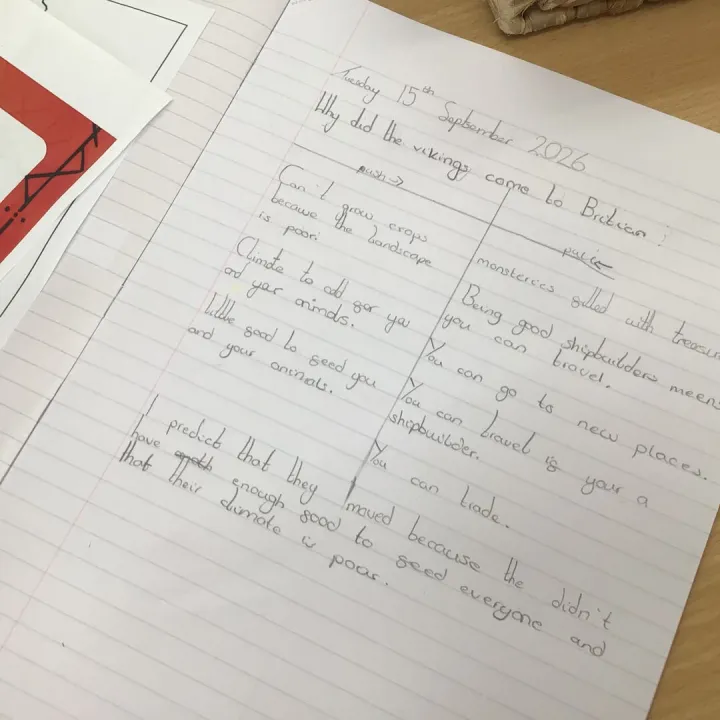 Tuesday 15th September 2026
Why did the vikings come to Britian?
push →
Can't grow crops
because the landscape
is poor.
Climate to cold for you
and your animals.
little food to feed you
and your animals.
pull ←
monsteries filled with treasure
Being good shipbuilders meens
you can travel.
You can go to new places.
You can travel if your a
shipbuilder.
You can trade.
I predict that they moved because the didn't
have enough food to feed everyone and
that their climate is poor.